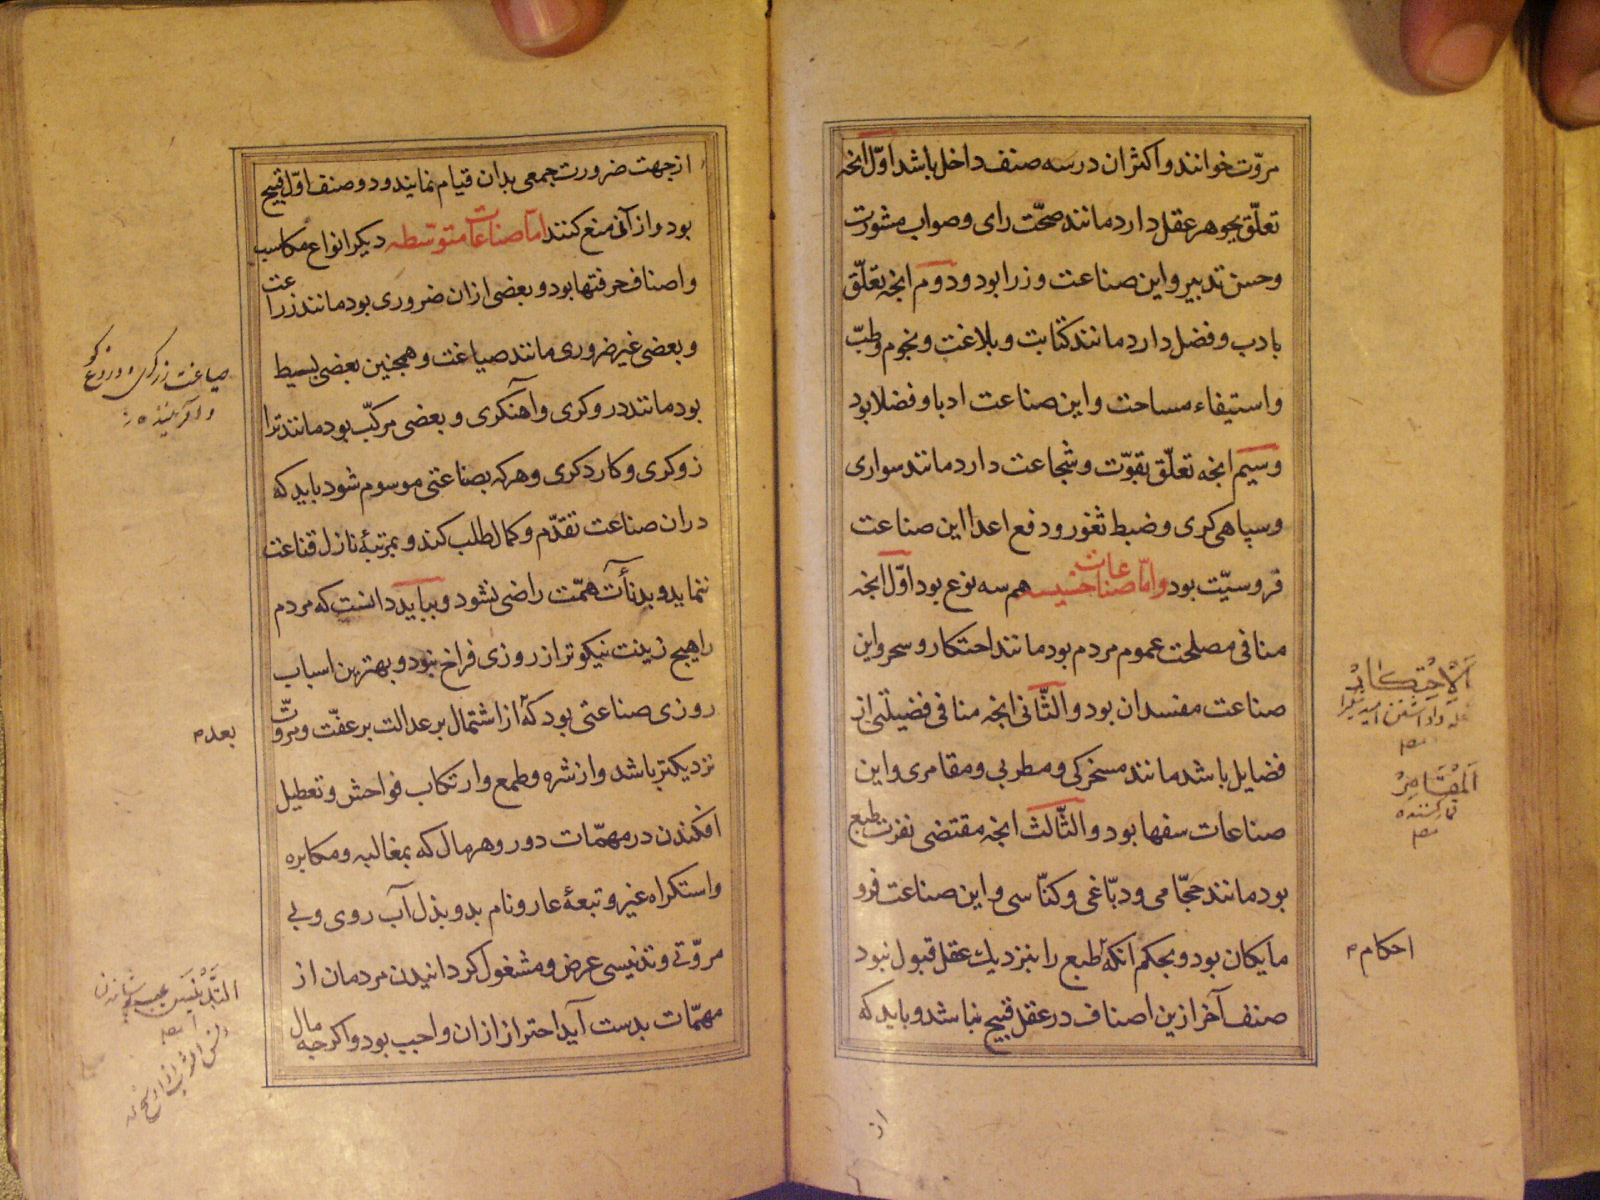 مروّت خوانند و اکثر ان در سه صنف داخل باشد اوّل انچه
تعلّق بجوهر عقل دارد مانند صحّت رای و صواب مشورت
و حسن تدبیر و این صناعت وزرا بود و دوم انچه تعلّق
بادب و فضل دارد مانند کتابت و بلاغت و نجوم و طبّ
و استیفاء مساحت و این صناعت ادبا و فضلا بود
و سیم انچه تعلّق بقوّت و شجاعت دارد مانند سواری
و سپاهی کری و ضبط ثغور و دفع اعدا این صناعت
فروسیّت بود وامّا صناعات خسیسه هم سه نوع بود اوّل انچه
منافی مصلحت عموم مردم بود مانند احتکار و سحر و این
صناعت مفسدان بود و الثّانی انچه منافی فضیلتی از
فضایل باشد مانند مسخرکی و مطربی و مقامری و این
صناعات سفها بود و الثّالث انچه مقتضی نفرت طبع
بود مانند حجّامی و دبّاغی و کنّاسی و این صناعت فرو
مایکان بود و بحکم انکه طبع را بنزدیك عقل قبول نبود
صنف آخر ازین اصناف در عقل قبیح نباشد و باید که
الْاِحْتِکَارْ
اَلْمُقَامِرْ
قمار کننده
احکام
از
از جهت ضرورت جمعی بدان قیام نمایند و دو صنف اوّل قبیح
بود و از آن منع کنند امّا صناعات متوسّطه دیکر انواع مکاسب
و اصناف حرفتها بود و بعضی ازان ضروری بود مانند زراعت
و بعضی غیر ضروری مانند صیاغت و همچنین بعضی بسیط
بود مانند درو کری و آهنکری و بعضی مرکّب بود مانند ترا
زو کری و کارد کری و هر که بصناعتی موسوم شود باید که
دران صناعت تقدّم و کمال طلب کند و بمرتبهٔ نازل قناعت
ننماید و بدنأت همّت راضی نشود و بباید دانست که مردم
را هیچ زینت نیکوتر از روزی فراخ نبود و بهترین اسباب
روزی صناعتی بود که از اشتمال بر عدالت بر عفّت و مروّت
نزدیکتر باشد و از شره و طمع و ارتکاب فواحش و تعطیل
افکندن در مهمّات دور و هر مال که بمغالبه و مکابره
و استکراه غیر و تبعهٔ عار و نام بد و بذل آب روی و بی
مروّتی و تدنیس عرض و مشغول کردانیدن مردمان از
مهمّات بدست آید احتراز ازان واجب بود و اکر چه مال
صیاغت زرکری
بعد
التَّدْنِیس